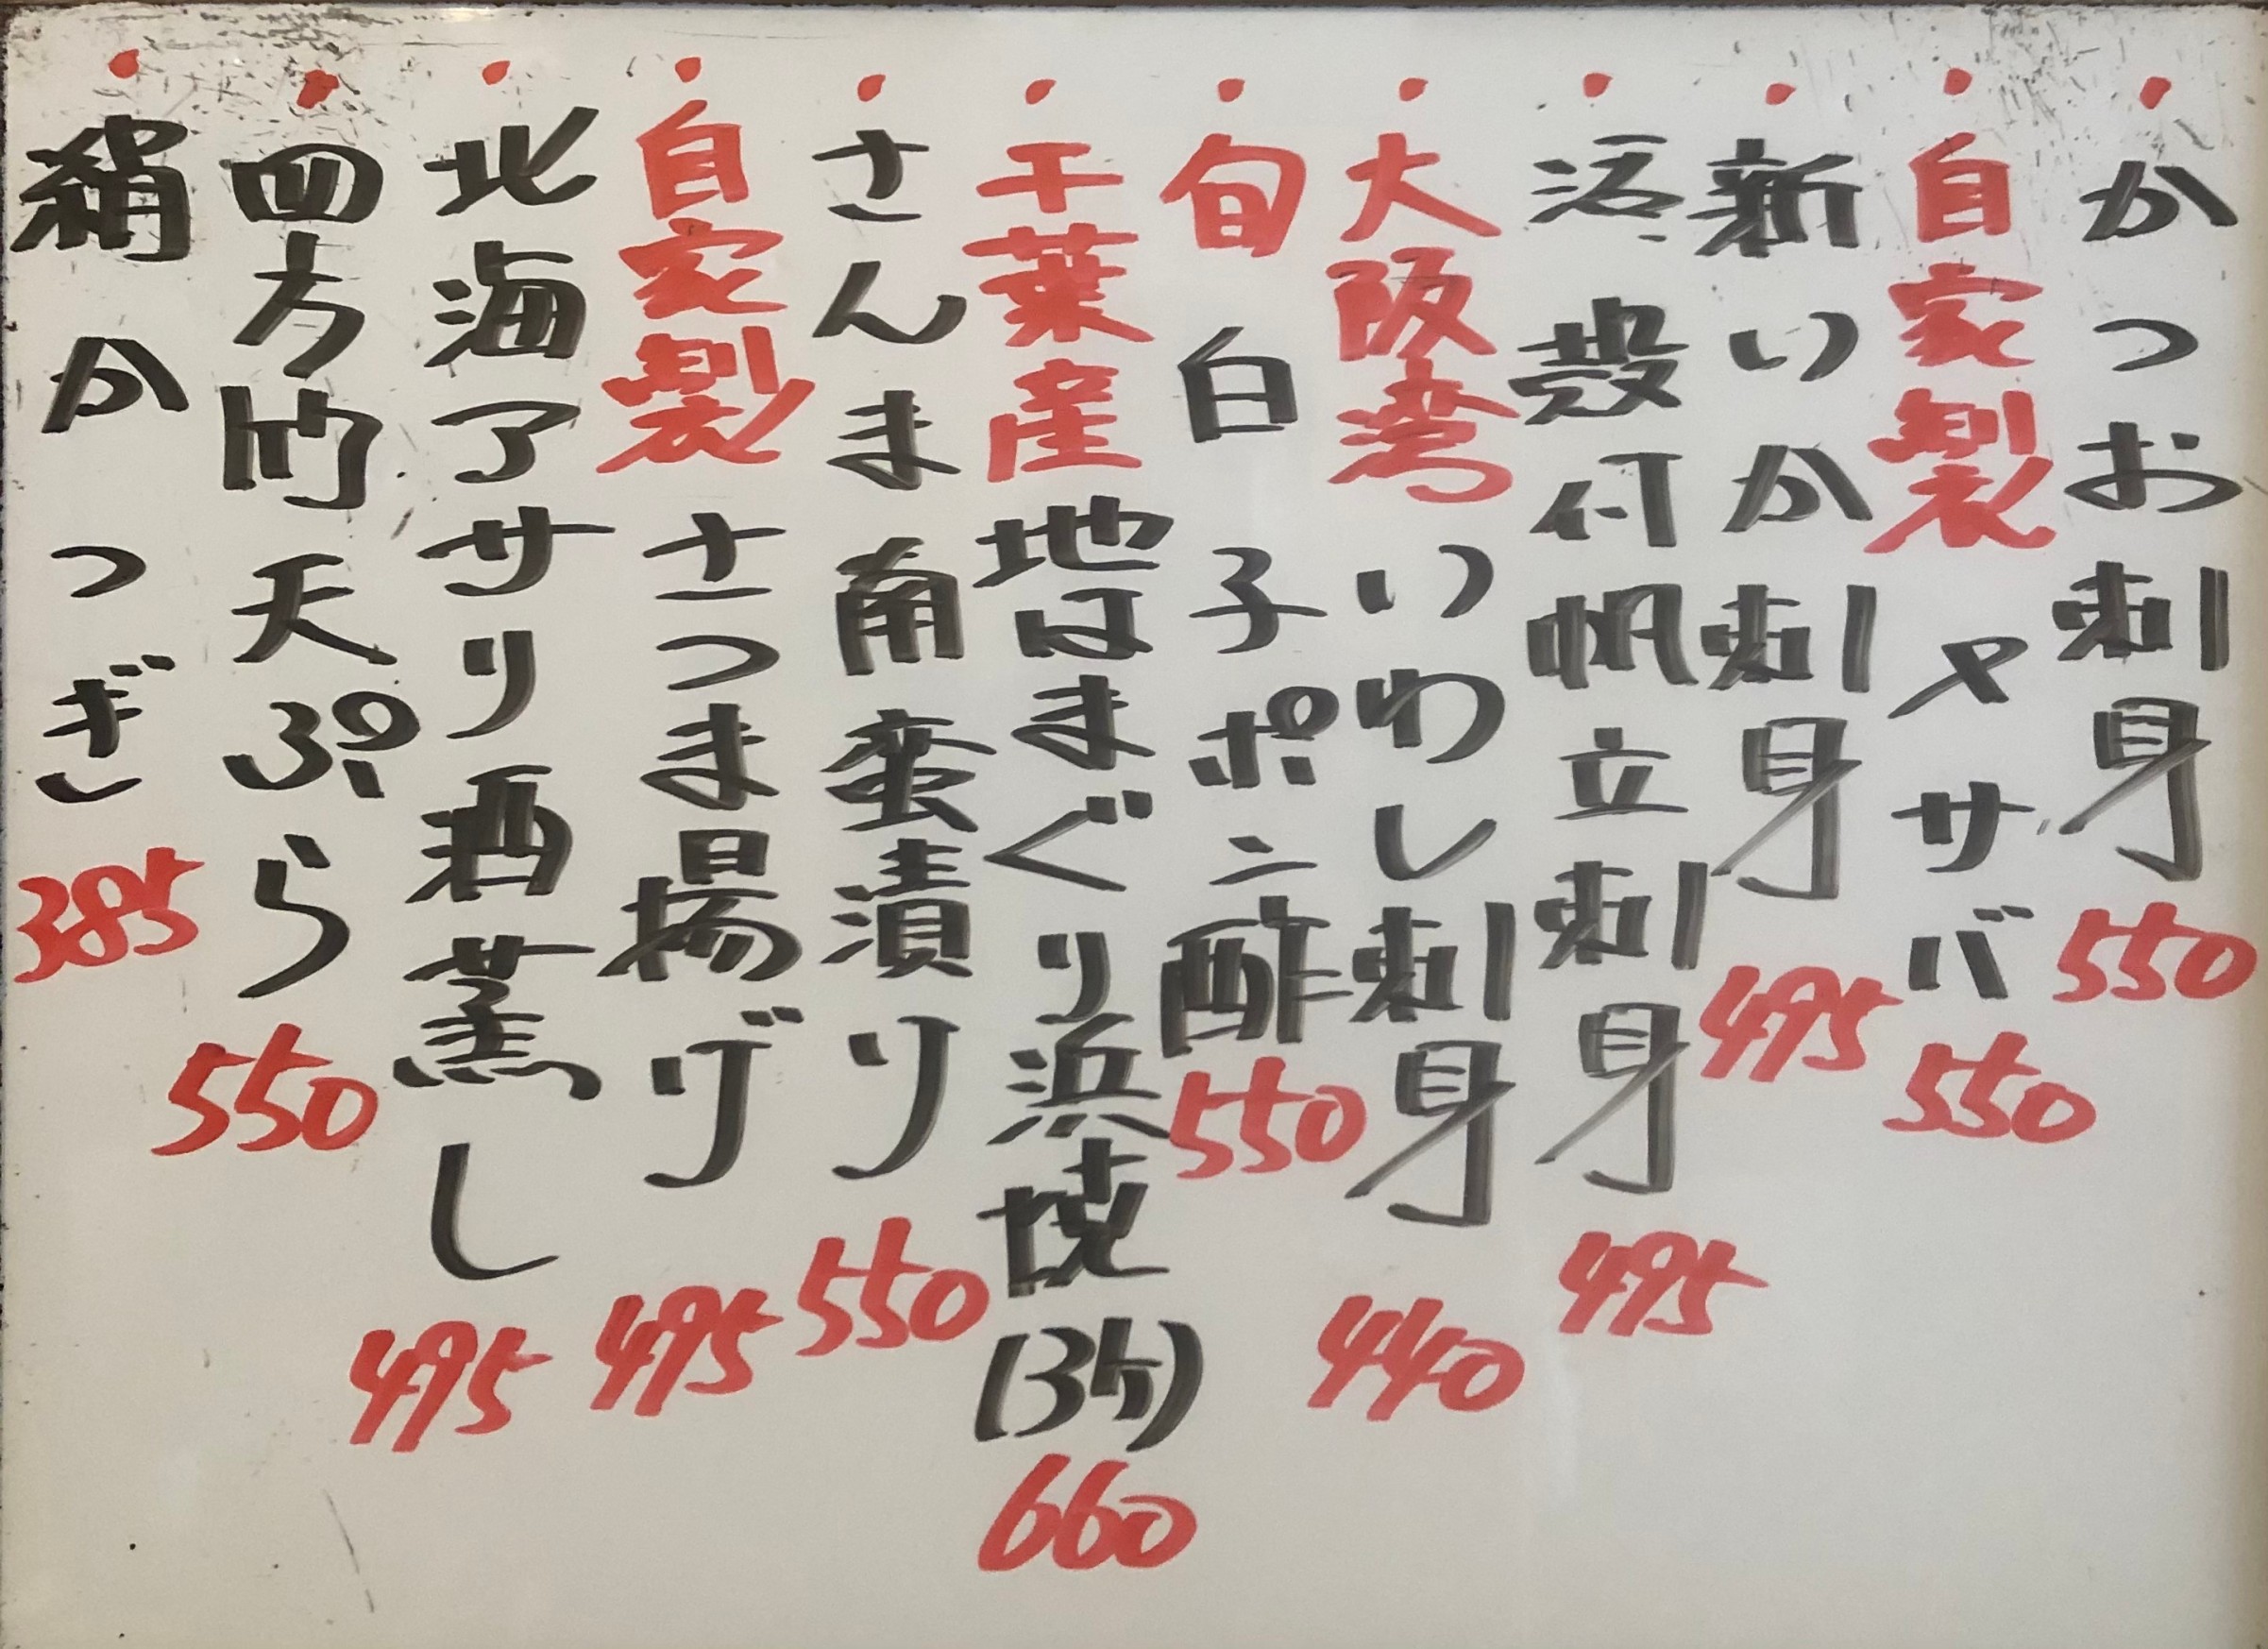 ・かつお刺身 550
・自家製 〆サバ 550
・新いか刺身 495
・活 殻付帆立刺身 495
・大阪湾 いわし刺身 440
・旬 白子ポン酢 550
・千葉産 地はまぐり浜焼(3ケ) 660
・さんま南蛮漬り 550
・自家製 さつま揚げ 495
・北海アサリ酒蒸し 495
・四方竹天ぷら 550
・絹かつぎ 385